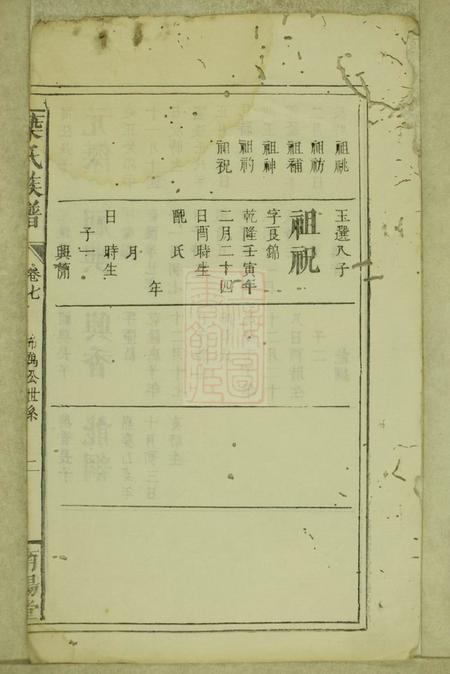 祖祧
祖祊
祖補
祖神
祖礿
祖祝
玉選八子
祖祝
字良錦
乾隆壬寅年
二月二十四
日酉時生
配氏
年
月
日時生
子一
興簡
葉氏族譜
卷七
萬公世系
南陽堂